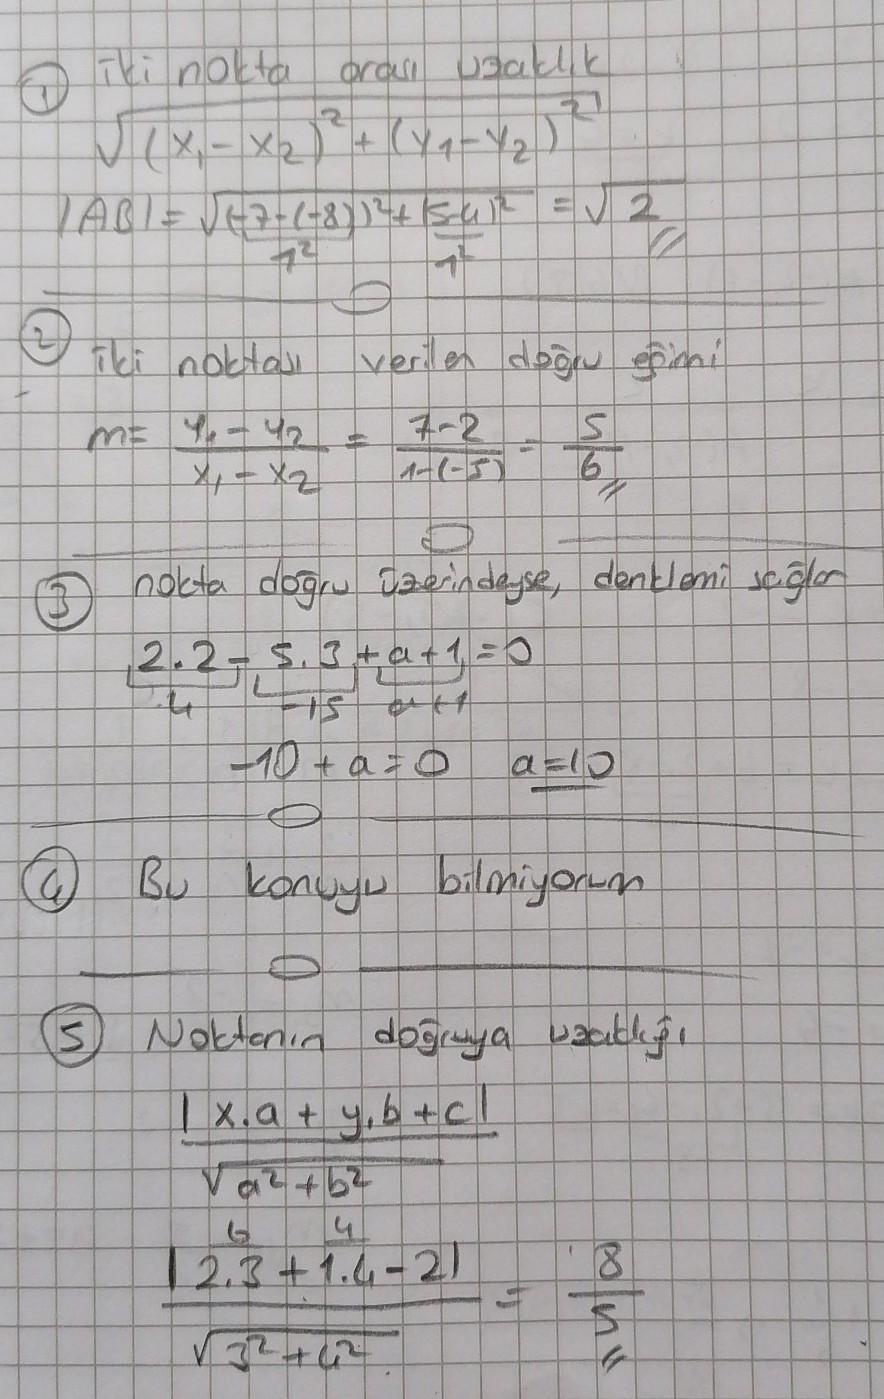 ① iki nokta arası uzaklık
√(x₁-x₂)²+(y₁-y₂)²
|AB|=√(-7-(-8))²+(5-4)² = √2
1² 1²
② iki noktası verilen doğru eğimi
m= y₁-y₂ / x₁-x₂ = 7-2 / 1-(-5) = 5/6
③ nokta doğru üzerindeyse, denklemi sağlar
2.2 - 5.3 + a+1 = 0
4 -15 a+1
-10 + a = 0 a=10
④ Bu konuyu bilmiyorum
⑤ Noktanın doğruya uzaklığı
|x.a + y.b + c|
√a²+b²
6 4
|2.3 + 1.4 - 2| = 8
√3²+4² 5